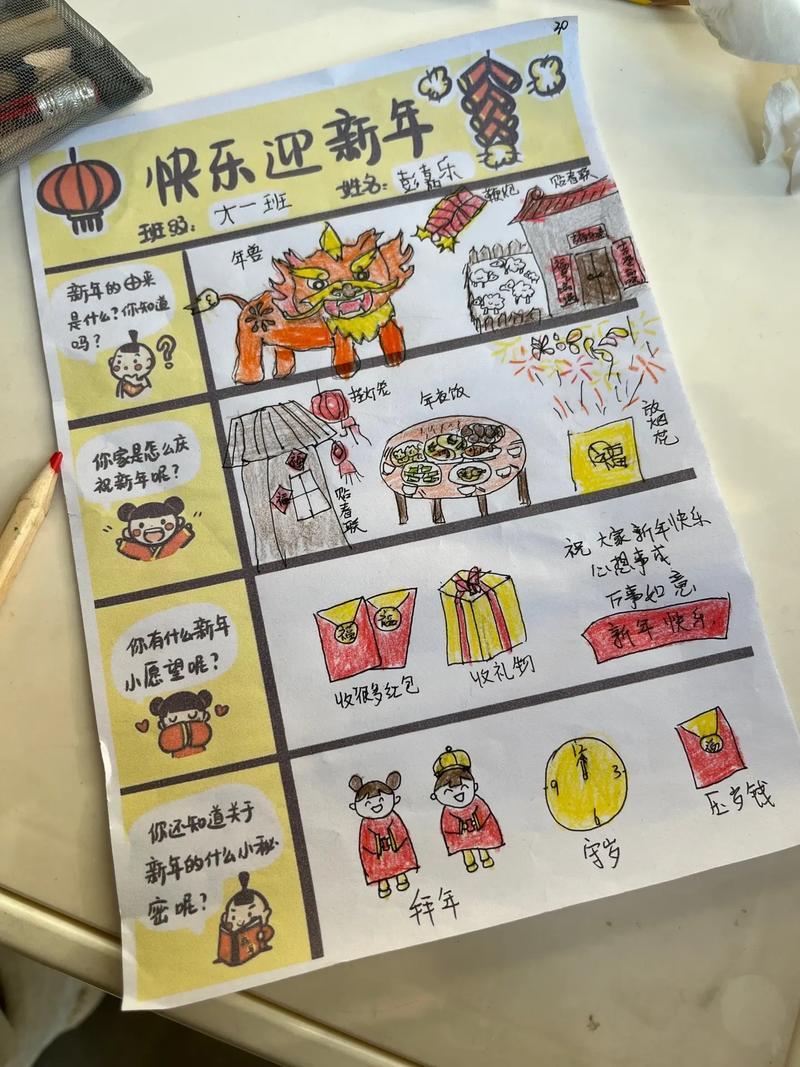 30
快乐迎新年
班级:大一班 姓名:彭嘉乐
新年的由来
是什么?你知道
吗?
?
年兽
鞭炮
贴春联
你家是怎么庆
祝新年呢?
挂灯笼
福
福
贴春联
年夜饭
福
放烟花
你有什么新年
小愿望呢?
福
福
收很多红包
收礼物
祝大家新年快乐
心想事成
万事如意
新年快乐
你还知道关于
新年的什么小秘
密呢?
拜年
12
3
6
9
守岁
福
压岁钱